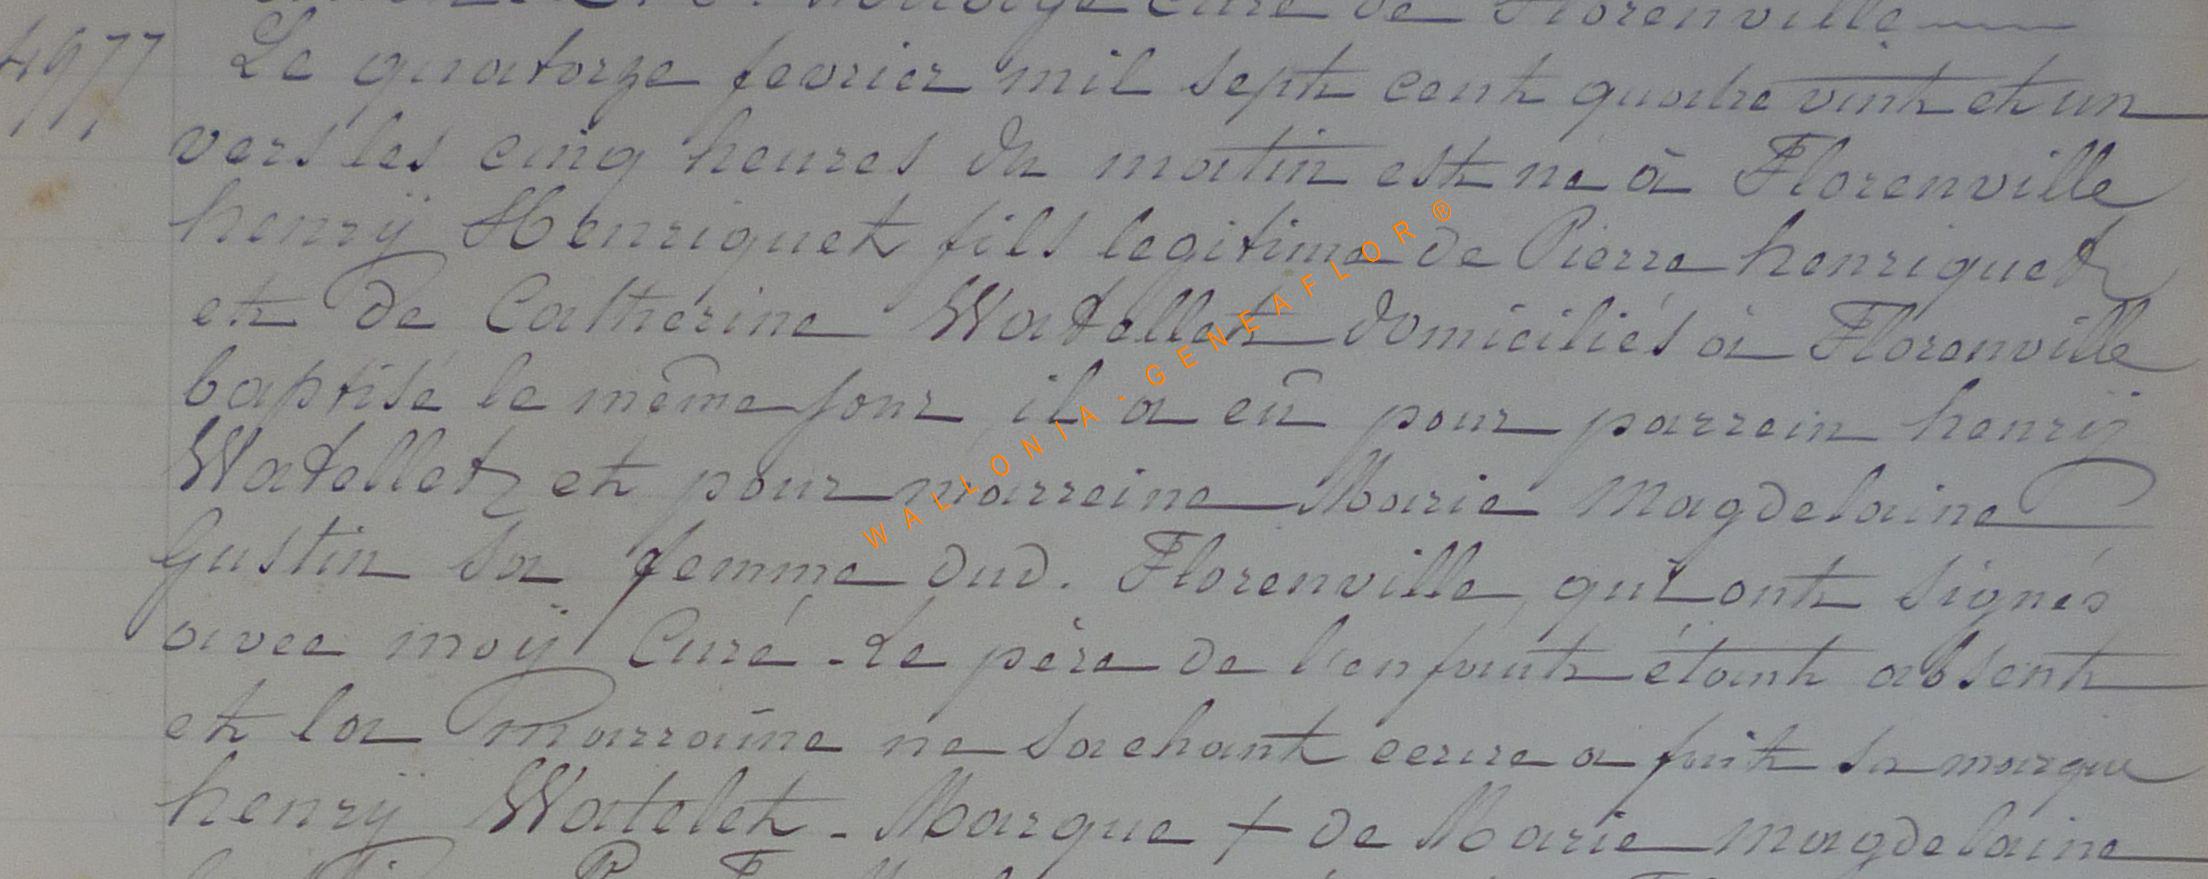 curé de Florenville
4977 Le quatorze fevrier mil sept cent quatre vint et un
vers les cinq heures du matin est né à Florenville
henrÿ Henriquet fils legitime de Pierre henriquet
et de Catherine Watellet domiciliés à Florenville
baptisé le même jour, il a eû pour parrein henrÿ
Watellet et pour marreine Marie Magdelaine
Gustin sa femme dud. Florenville, qui ont signés
avec moÿ Curé - Le père de l'enfant étant absent
et la Marraine ne sachant ecrire a fait sa marque
henrÿ Watelet - Marque + de Marie Magdelaine
WALLONIA - GENEAFLOR ®